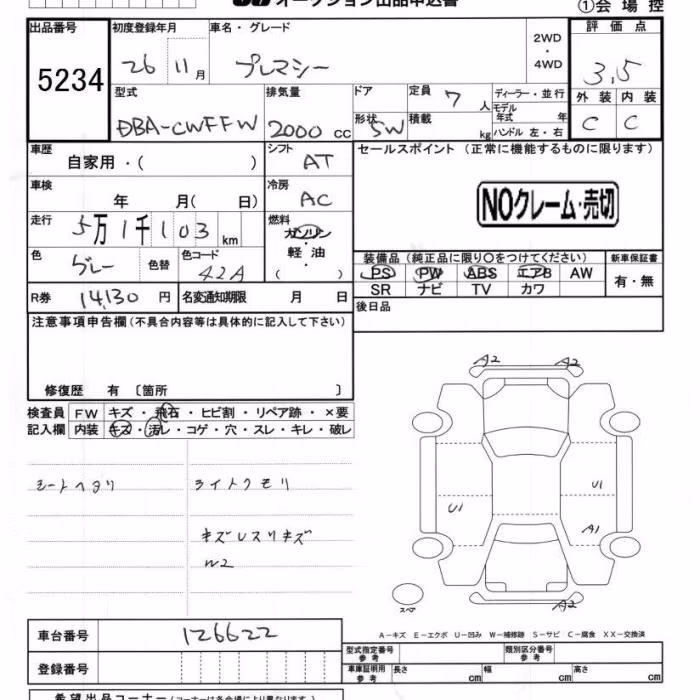 オークション出品申込書
①会場控
出品番号
5234
初度登録年月
26 11月
車名・グレード
プレマシー
2WD
・
4WD
評価点
3,5
外装 内装
C C
型式
DBA-CWFFW
排気量
2000 cc
ドア
形状
SW
定員 7 人
積載 kg
ディーラー・並行
モデル
年式 年
ハンドル 左・右
車歴
自家用・( )
シフト
AT
セールスポイント(正常に機能するものに限ります)
NOクレーム・売切
車検
年 月( 日)
冷房
AC
走行
5万1千103km
燃料
ガソリン
・
軽油
( )
色
グレー
色替
色コード
42A
装備品(純正品に限り○をつけてください)
PS PW ABS エアB AW
SR ナビ TV カワ
新車保証書
有・無
R券 14,130 円
名変通知期限 月 日
後日品
注意事項申告欄(不具合内容等は具体的に記入して下さい)
修復歴 有 〔箇所 〕
検査員
記入欄
FW キズ・飛石・ヒビ割・リペア跡・×要
内装 キズ・汚レ・コゲ・穴・スレ・キレ・破レ
シートヘタリ
ライトクモリ
キズレスリキズ
W2
A2 A2
U1
U1
A1
スペア
A2
A-キズ E-エクボ U-凹み W-補修跡 S-サビ C-腐食 XX-交換済
車台番号
126622
登録番号
型式指定番号
参考
類別区分番号
参考
車庫証明用
参考
長さ cm
幅 cm
高さ cm
希望出品コーナー(コーナーは各会場により異なります)